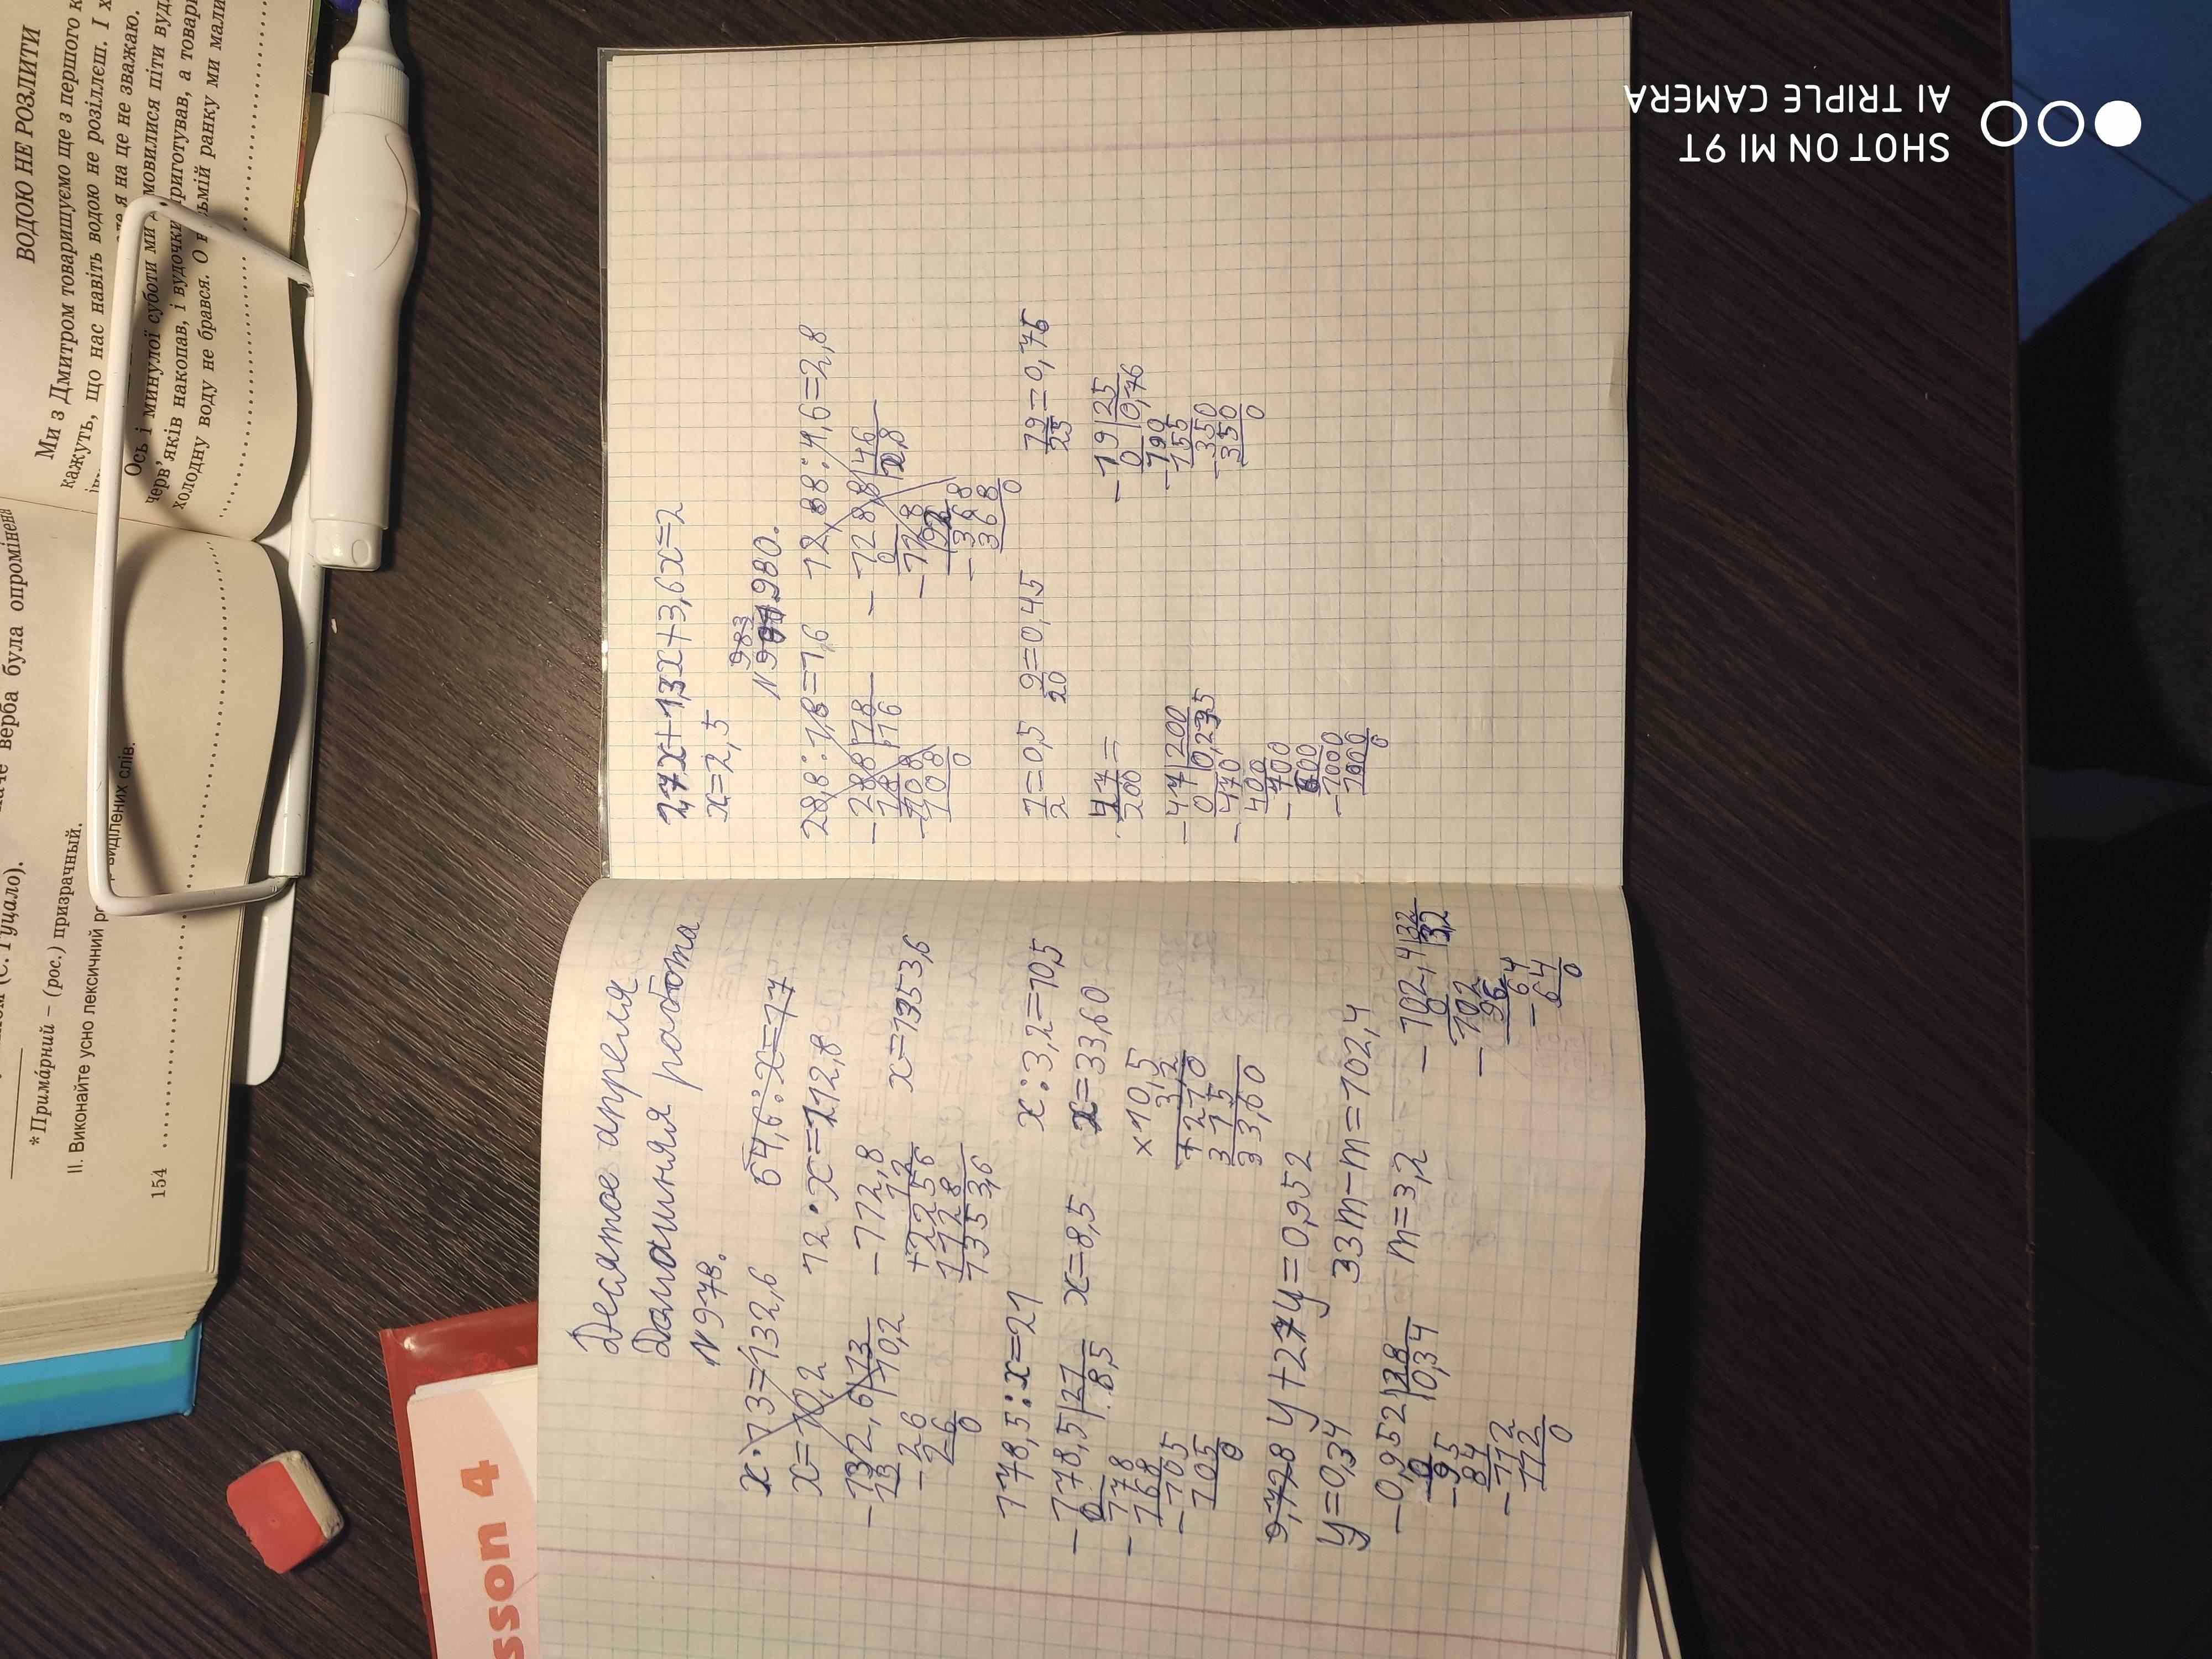 Десятое апреля
Домашняя работа
№978.
x·13=132,6
64,6:x=17
x=10,2
12·x=112,8
-132,6|13
13 10,2
-26
26
0
-112,8
1,2
+2256
1128
1353,6
x=1353,6
178,5:x=21
x:3,2=10,5
-178,5|21
0 8,5
-178
168
-105
105
0
x=8,5
x=33,60
×10,5
3,2
+210
315
33,60
y+27y=0,952
y=0,34
33m-m=102,4
m=3,2
-0,952|28
0 0,34
-95
84
-112
112
0
-102,4|32
0 3,2
-102
96
-64
64
0
2,7x+1,3x+3,6x=2
x=2,5
983
№980.
28,8:1,8=1,6
12,88:4,6=2,8
-288|18
18 16
-108
108
0
-128,8|46
0 2,8
-128
92
-368
368
0
1/2=0,5
9/20=0,45
19/25=0,76
47/200=
-47|200
0 0,235
-470
400
-700
600
-1000
1000
0
-19|25
0 0,76
-190
-350
350
0
ВОДОЮ НЕ РОЗЛИТИ
Ми з Дмитром товаришуємо ще з першого к
кажуть, що нас навіть водою не розіллєш. І х
я на це не зважаю.
Ось і минулої суботи ми домовилися піти вуд
черв'яків накопав, і вудочки приготував, а товари
холодну воду не брався. О восьмій ранку ми мали
(С. Гуцало).
верба була опромінена
*Примáрний – (рос.) призрачный.
II. Виконайте усно лексичний р
виділених слів.
154
sson 4
SHOT ON MI 9T
AI TRIPLE CAMERA